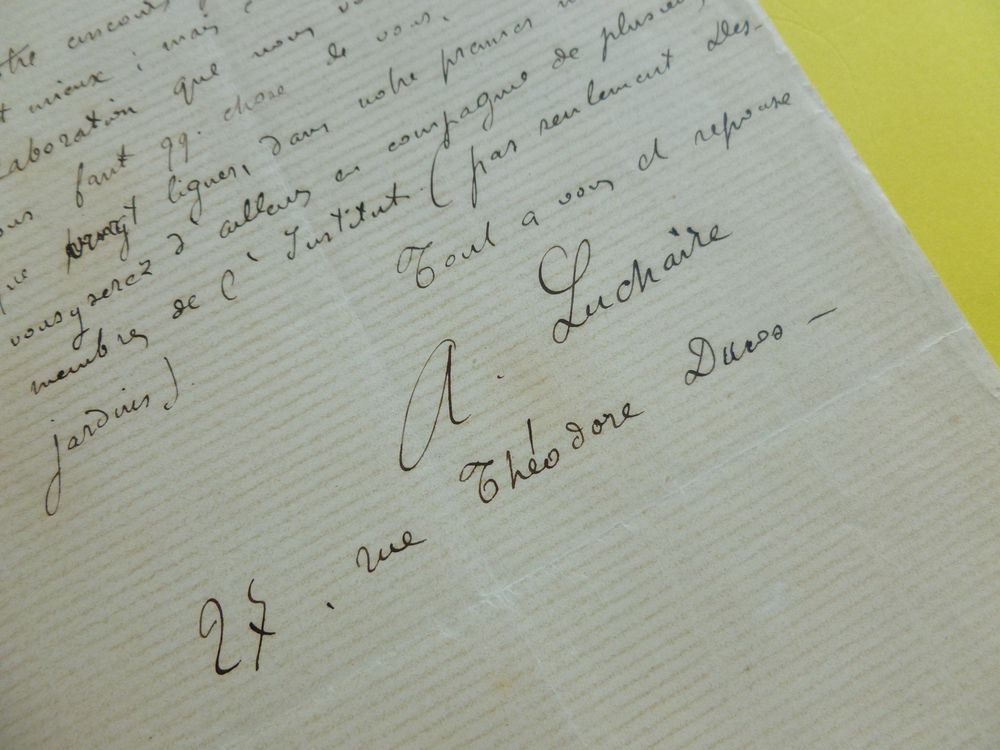 mieux ; mais
laboration que nous
faut qq. chose de vous,
vingt lignes, dans notre premier
vous y serez d'ailleurs en compagnie de plusieurs
membres de l'Institut (pas seulement des
jardins).
Tout à vous et réponse
A. Luchaire
27. rue Théodore Ducos -